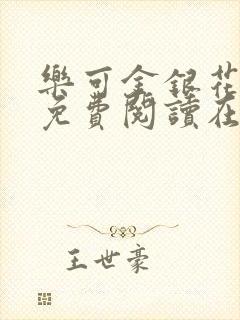 樂可金銀花
免費閱讀在
王世豪